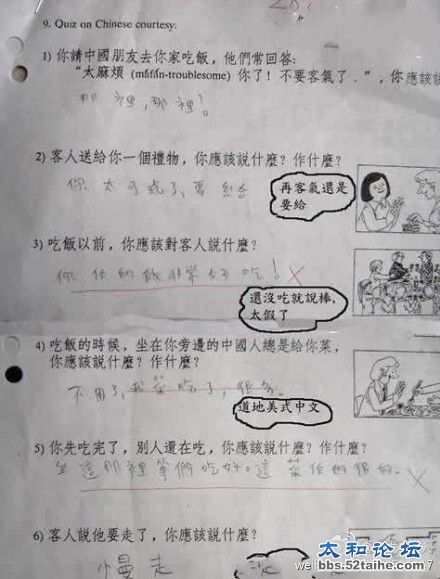 9. Quiz on Chinese courtesy:
1) 你請中國朋友去你家吃飯，他們常回答:
“太麻煩 (máfán-troublesome) 你了! 不要客氣了．”，你應該
那裡，那裡!
2) 客人送給你一個禮物，你應該說什麼? 作什麼?
你太客氣了
再客氣還是
要給
3) 吃飯以前，你應該對客人說什麼?
你作的飯非常好吃!
還沒吃就說棒，
太假了
4) 吃飯的時候，坐在你旁邊的中國人總是給你菜，
你應該說什麼? 作什麼?
不用了
道地美式中文
5) 你先吃完了，別人還在吃，你應該說什麼? 作什麼?
坐這那裡等們吃好。這菜作的很好。
6) 客人說他要走了，你應該說什麼?
慢走
太和论坛
bbs.52taihe.com